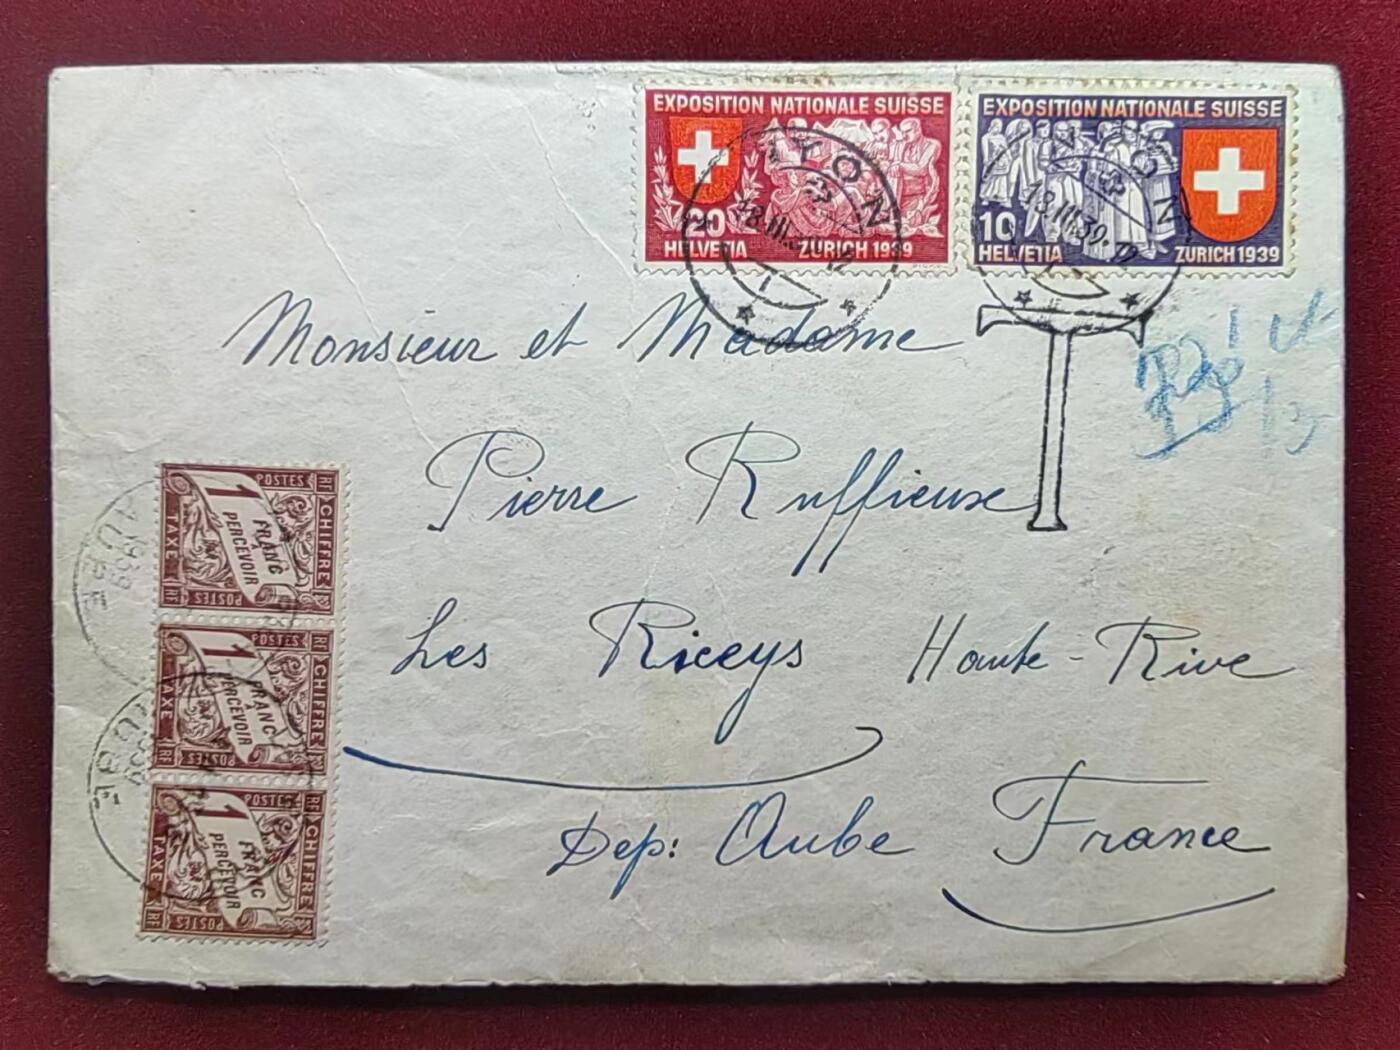 EXPOSITION NATIONALE SUISSE
20
HELVETIA ZURICH 1939
EXPOSITION NATIONALE SUISSE
10
HELVETIA ZURICH 1939
NYON
18.III.39.12
T
Monsieur et Madame
Pierre Ruffieux
Les Riceys Haute-Rive
Dep: Aube France
POSTES
RF CHIFFRE
1 FRANC
À
PERCEVOIR
TAXE RF
POSTES
POSTES
RF CHIFFRE
1 FRANC
À
PERCEVOIR
TAXE RF
POSTES
POSTES
RF CHIFFRE
1 FRANC
À
PERCEVOIR
TAXE RF
POSTES
1939
AUBE
AUBE